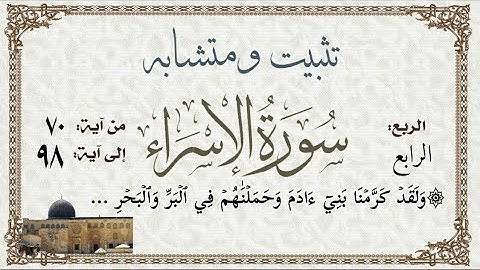 تثبيت ومتشابه
سُورَةُ الإِسْرَاء
الربع:
الرابع
من آية: ٧٠
إلى آية: ٩٨
۞وَلَقَدۡ كَرَّمۡنَا بَنِيٓ ءَادَمَ وَحَمَلۡنَٰهُمۡ فِي ٱلۡبَرِّ وَٱلۡبَحۡرِ ...